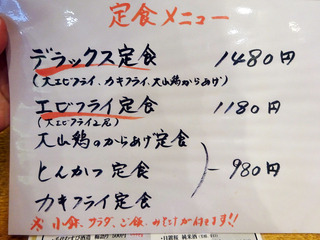 定食メニュー
デラックス定食 1480円
(大エビフライ、カキフライ、大山鶏からあげ)
エビフライ定食 1180円
(大エビフライ2尾)
大山鶏のからあげ定食
とんかつ定食 980円
カキフライ定食
※小鉢、サラダ、ご飯、みそ汁が付きます!!